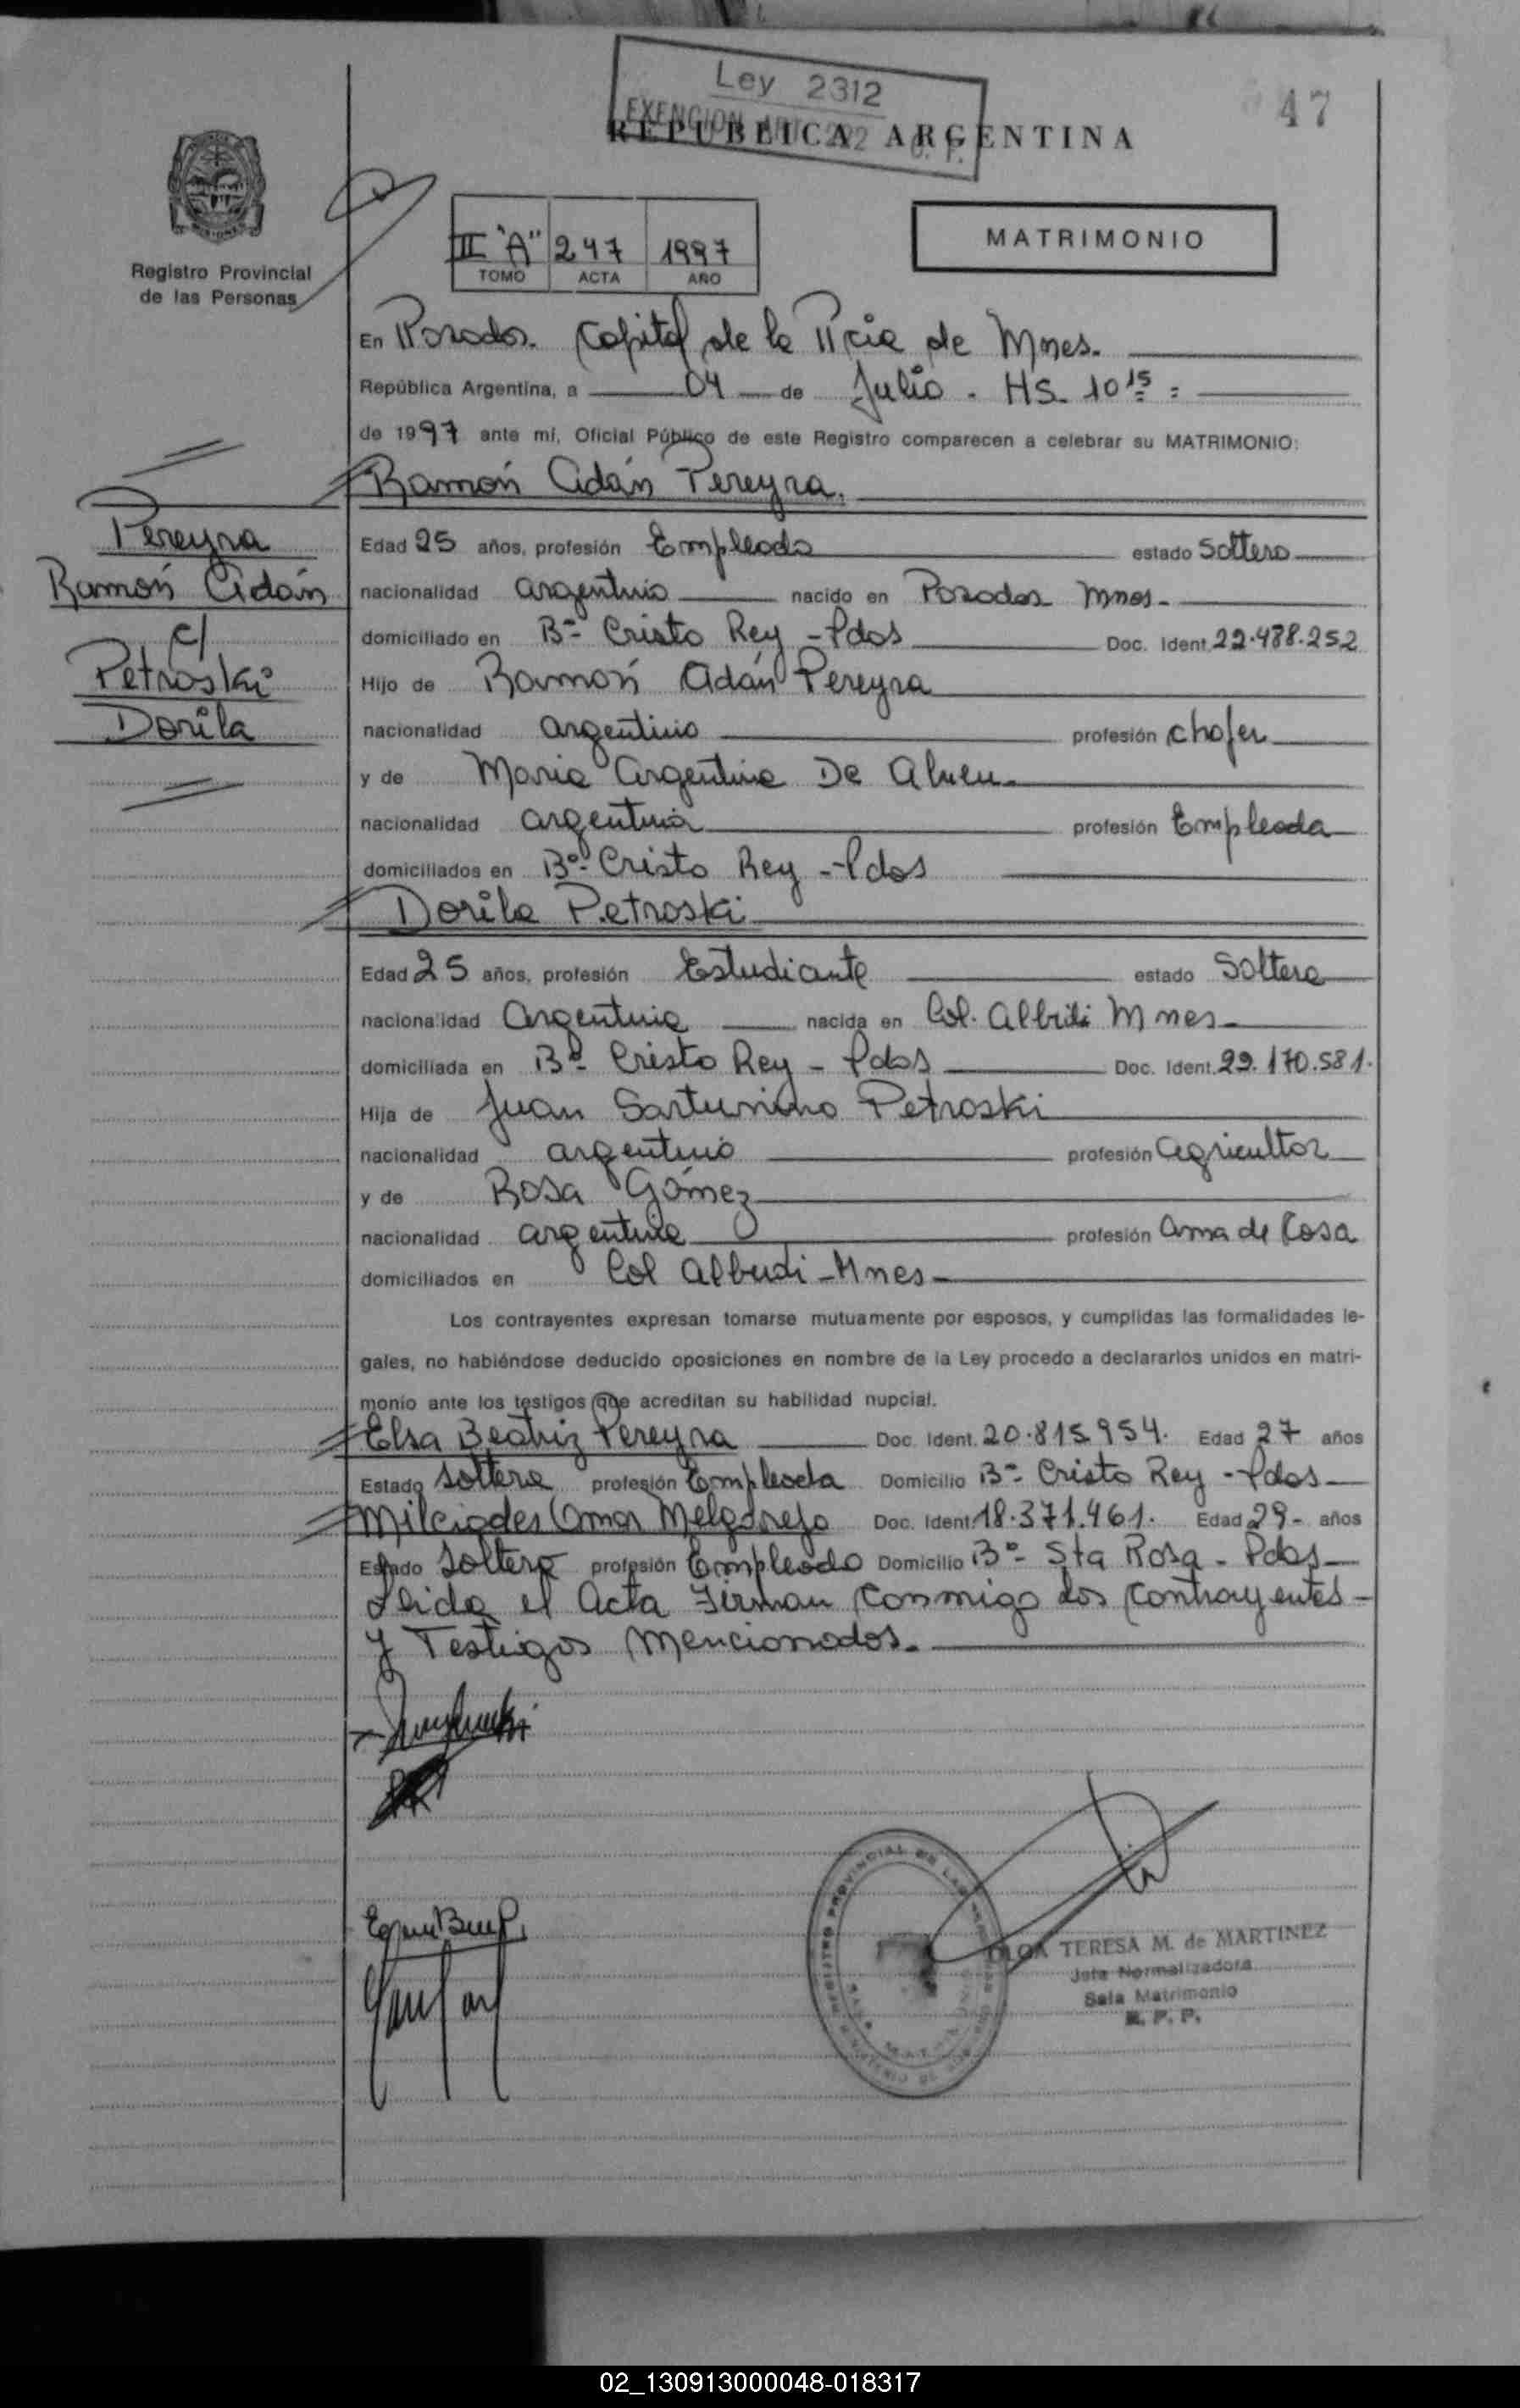 Ley 2312
EXENCION ART. 222 C. F.
47
REPUBLICA ARGENTINA
II "A" 247 1997
TOMO ACTA AÑO
MATRIMONIO
Registro Provincial
de las Personas
En Posadas. Capital de la Pcia de Mnes.
República Argentina, a 04 de Julio. HS. 10 15 =
de 1997 ante mí, Oficial Público de este Registro comparecen a celebrar su MATRIMONIO:
Ramón Adán Pereyra.
Pereyra
Ramón Adán
c/
Petroski
Dorila
Edad 25 años, profesión Empleado estado Soltero
nacionalidad argentino nacido en Posadas Mnes.
domiciliado en Bº Cristo Rey - Pdas Doc. Ident. 22.488.252
Hijo de Ramón Adán Pereyra
nacionalidad argentino profesión chofer
y de Maria Argentina De
nacionalidad argentina profesión Empleada
domiciliados en Bº Cristo Rey - Pdas
Dorila Petroski
Edad 25 años, profesión Estudiante estado Soltera
nacionalidad Argentina nacida en Col. Mnes.
domiciliada en Bº Cristo Rey - Pdas Doc. Ident. 22.170.581.
Hija de Juan Sarturnino Petroski
nacionalidad argentino profesión agricultor
y de Rosa Gómez
nacionalidad argentina profesión Ama de Casa
domiciliados en Col Mnes
Los contrayentes expresan tomarse mutuamente por esposos, y cumplidas las formalidades le-
gales, no habiéndose deducido oposiciones en nombre de la Ley procedo a declararlos unidos en matri-
monio ante los testigos que acreditan su habilidad nupcial.
Elsa Beatriz Pereyra Doc. Ident. 20.815.954. Edad 27 años
Estado Soltera profesión Empleada Domicilio Bº Cristo Rey - Pdas
Milciades Omar Melgarejo Doc. Ident. 18.371.461. Edad 29 años
Estado Soltero profesión Empleado Domicilio Bº Sta Rosa - Pdas
Leida el Acta Firman Conmigo los Contrayentes
y Testigos Mencionados.
TERESA M. de MARTINEZ
Jefa Normalizadora
Sala Matrimonio
R. P. P.
02_130913000048-018317